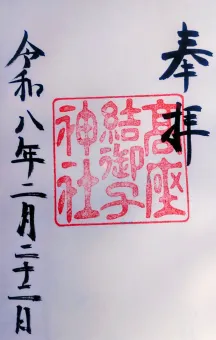 奉拝
高座
結御子
神社
令和八年二月二十二日